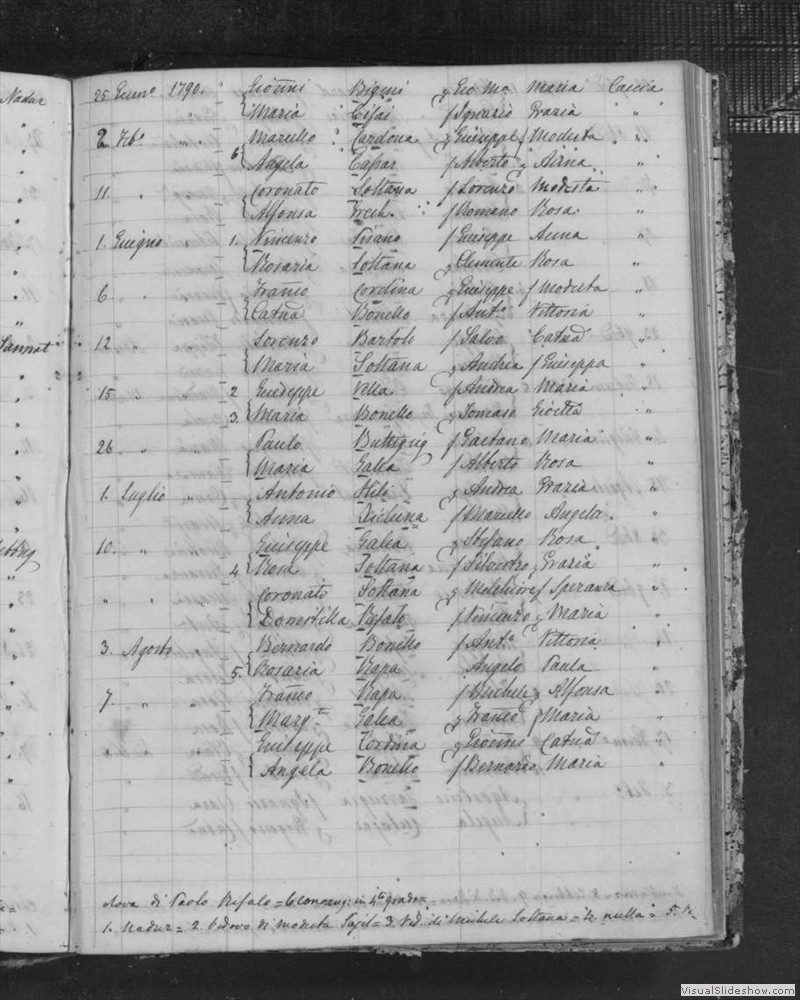 Nadur
25 Genn° 1790. Gio͞nni Bigeni Gio Mª Maria Caccia
Maria f Ignazio Grazia "
2 Feb° " Marcello Cardona Giuseppe f Modesta "
6 Angela f Alberto "
11. " Coronato Soltana f Lorenzo Modesta "
Alfonsa Grech f Romano Rosa "
1. Giugno " 1. Vincenzo Pisano f Giuseppe Anna "
Rosaria Soltana Clemente Rosa "
6 " Franco Cordina Giuseppe f Modesta "
Catna Bonello f Antº Vittoria "
Sannat
12 Lorenzo Bartolo f Salvo Catna "
Maria Soltana Andrea f Giuseppa "
15 " 2 Giuseppe Vella f Andrea Maria "
3. Maria Bonello Tomaso "
26 " Paulo Buttigieg f Gaetano Maria "
Maria Galea f Alberto Rosa "
1. Luglio " Antonio Andrea Grazia "
Anna Xicluna f Marcello Angela "
10. " " Giuseppe Galea Stefano Rosa "
4 Rosa Soltana f Silvestro Grazia "
" " Coronato Soltana Melchiore f Speranza "
Domitilla Refalo f Vincenzo Maria "
3. Agosto Bernardo Bonello f Antº Vittoria "
5. Rosaria Rapa Angelo Paula "
7. " Franco Rapa f Michele Alfonsa "
Margta Galea Franco f Maria "
Giuseppe Cordina Gionni Catna "
Angela Bonello f Bernardo Maria "
di Paolo Refalo = 6 Consang: in 4to grado =
1. Nadur = 2. Vedovo di Modesta = 3. Ved. di Michele Soltana = 4. nulla = 5. V=
VisualSlideshow.com